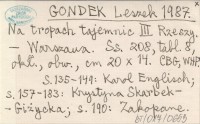 GONDEK Leszek 1987.
Na tropach tajemnic III. Rzeszy.
— Warszawa. Ss. 208, tabl. 8,
okł., obw., cm 20 x 14. CBG, WHP.
s. 135-149: Karol Englisch;
s. 157-183: Krystyna Skarbek-
Giżycka; s. 190: Zakopane.